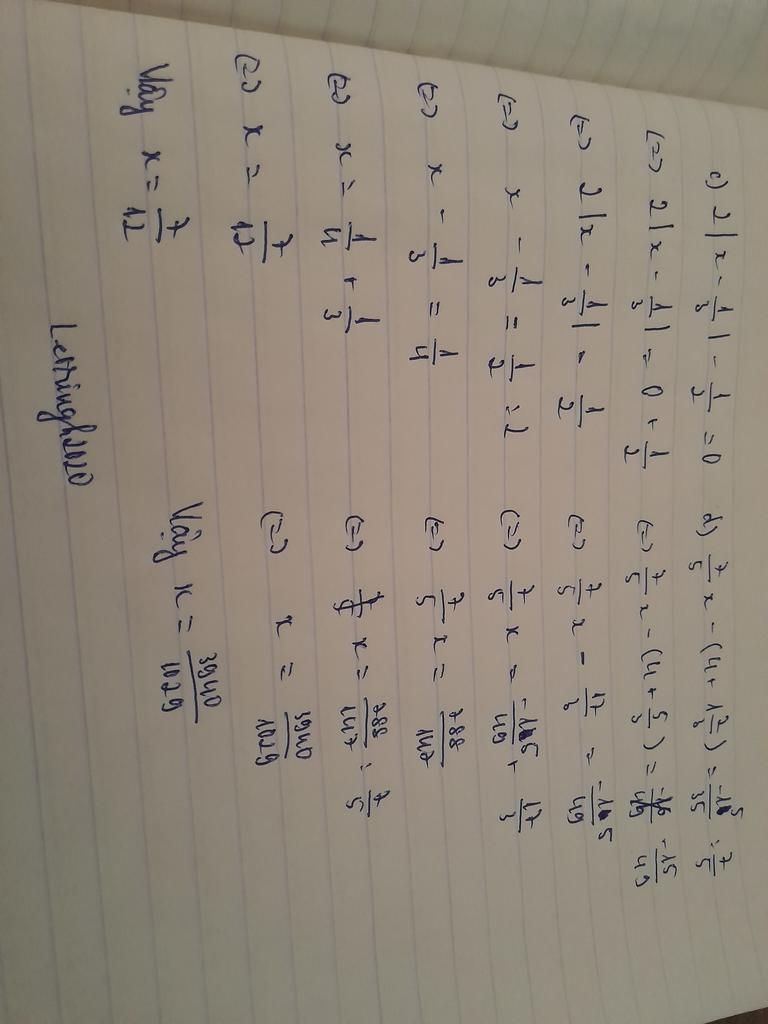 c) 2|x - 1/3| - 1/2 = 0
(=) 2|x - 1/3| = 0 + 1/2
(=) 2|x - 1/3| = 1/2
(=) x - 1/3 = 1/2 : 2
(=) x - 1/3 = 1/4
(=) x = 1/4 + 1/3
(=) x = 7/12
Vậy x = 7/12
d) 7/5 x - (4 + 1 2/3) = -15/35 : 7/5
(=) 7/5 x - (4 + 5/3) = -15/49
(=) 7/5 x - 17/3 = -15/49
(=) 7/5 x = -15/49 + 17/3
(=) 7/5 x = 788/147
(=) x = 788/147 : 7/5
(=) x = 3940/1029
Vậy x = 3940/1029